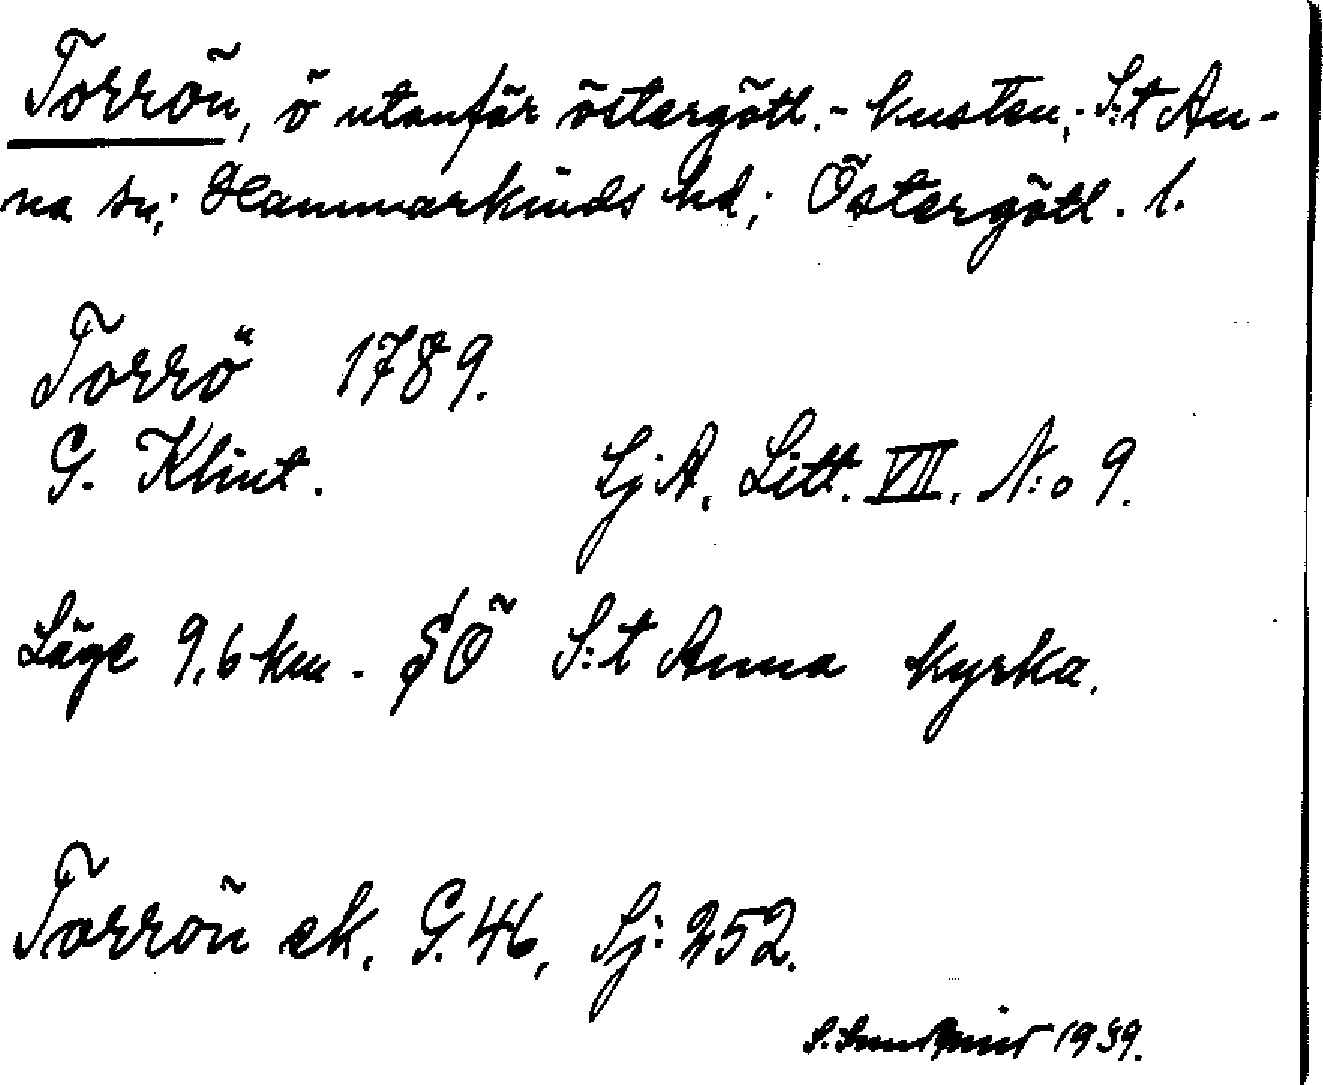 Torrön, ö utanför östergötl.-kusten, S:t An-
na sn; Hammarkinds hd; Östergötl. l.
Torrö 1789.
G. Klint. SjA, Litt. VII. N:o 9.
Läge 9,6 km. SÖ S:t Anna kyrka.
Torrön ek. G. 46, Sj: 252.
S. 1939.